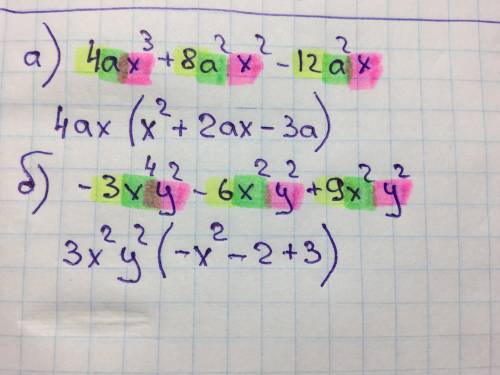 а) 4ax³ + 8a²x² - 12a²x
4ax (x² + 2ax - 3a)
б) - 3x⁴y² - 6x²y² + 9x²y²
3x²y² (-x² - 2 + 3)